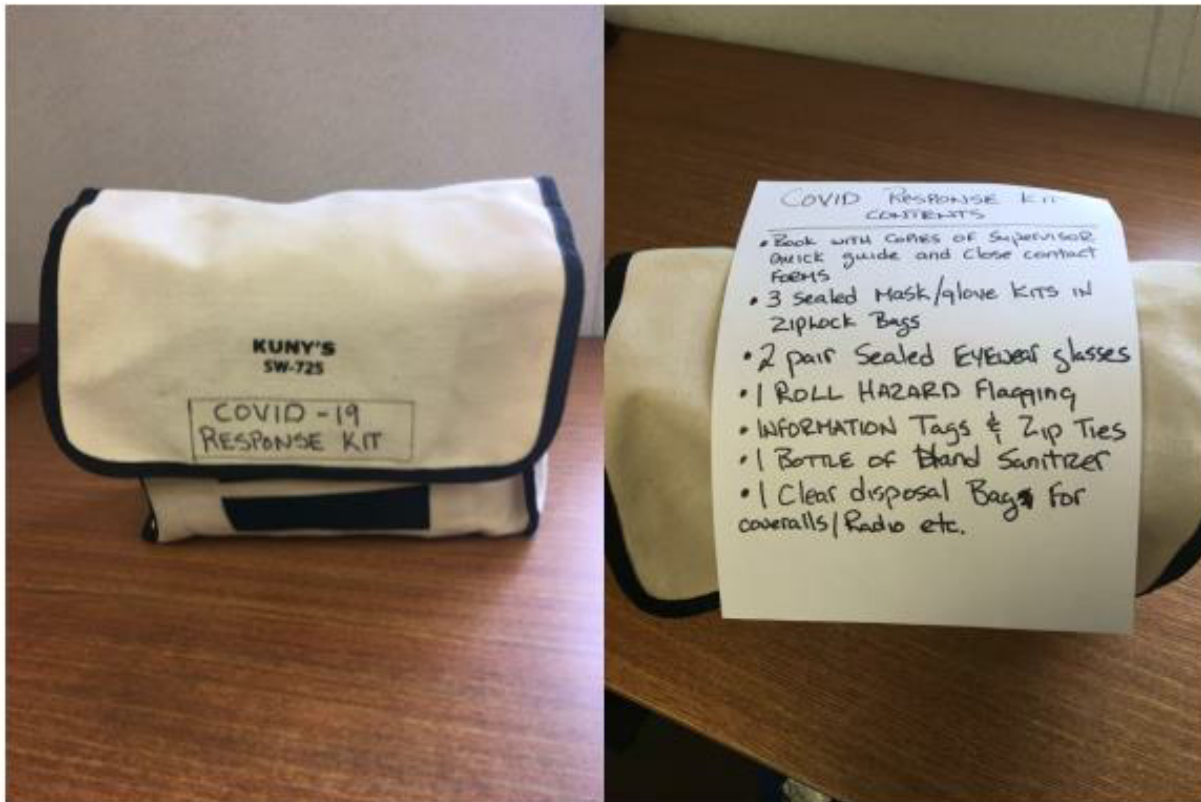 KUNY'S
SW-725
COVID-19
RESPONSE KIT
COVID RESPONSE KIT
CONTENTS
• Book with copies of Supervisor
Quick guide and Close contact
Forms
• 3 Sealed Mask/glove Kits in
Ziplock Bags
• 2 pair Sealed Eyewear glasses
• 1 Roll HAZARD Flagging
• INFORMATION Tags & Zip Ties
• 1 Bottle of Hand Sanitizer
• 1 Clear disposal Bag For
coveralls/Radio etc.